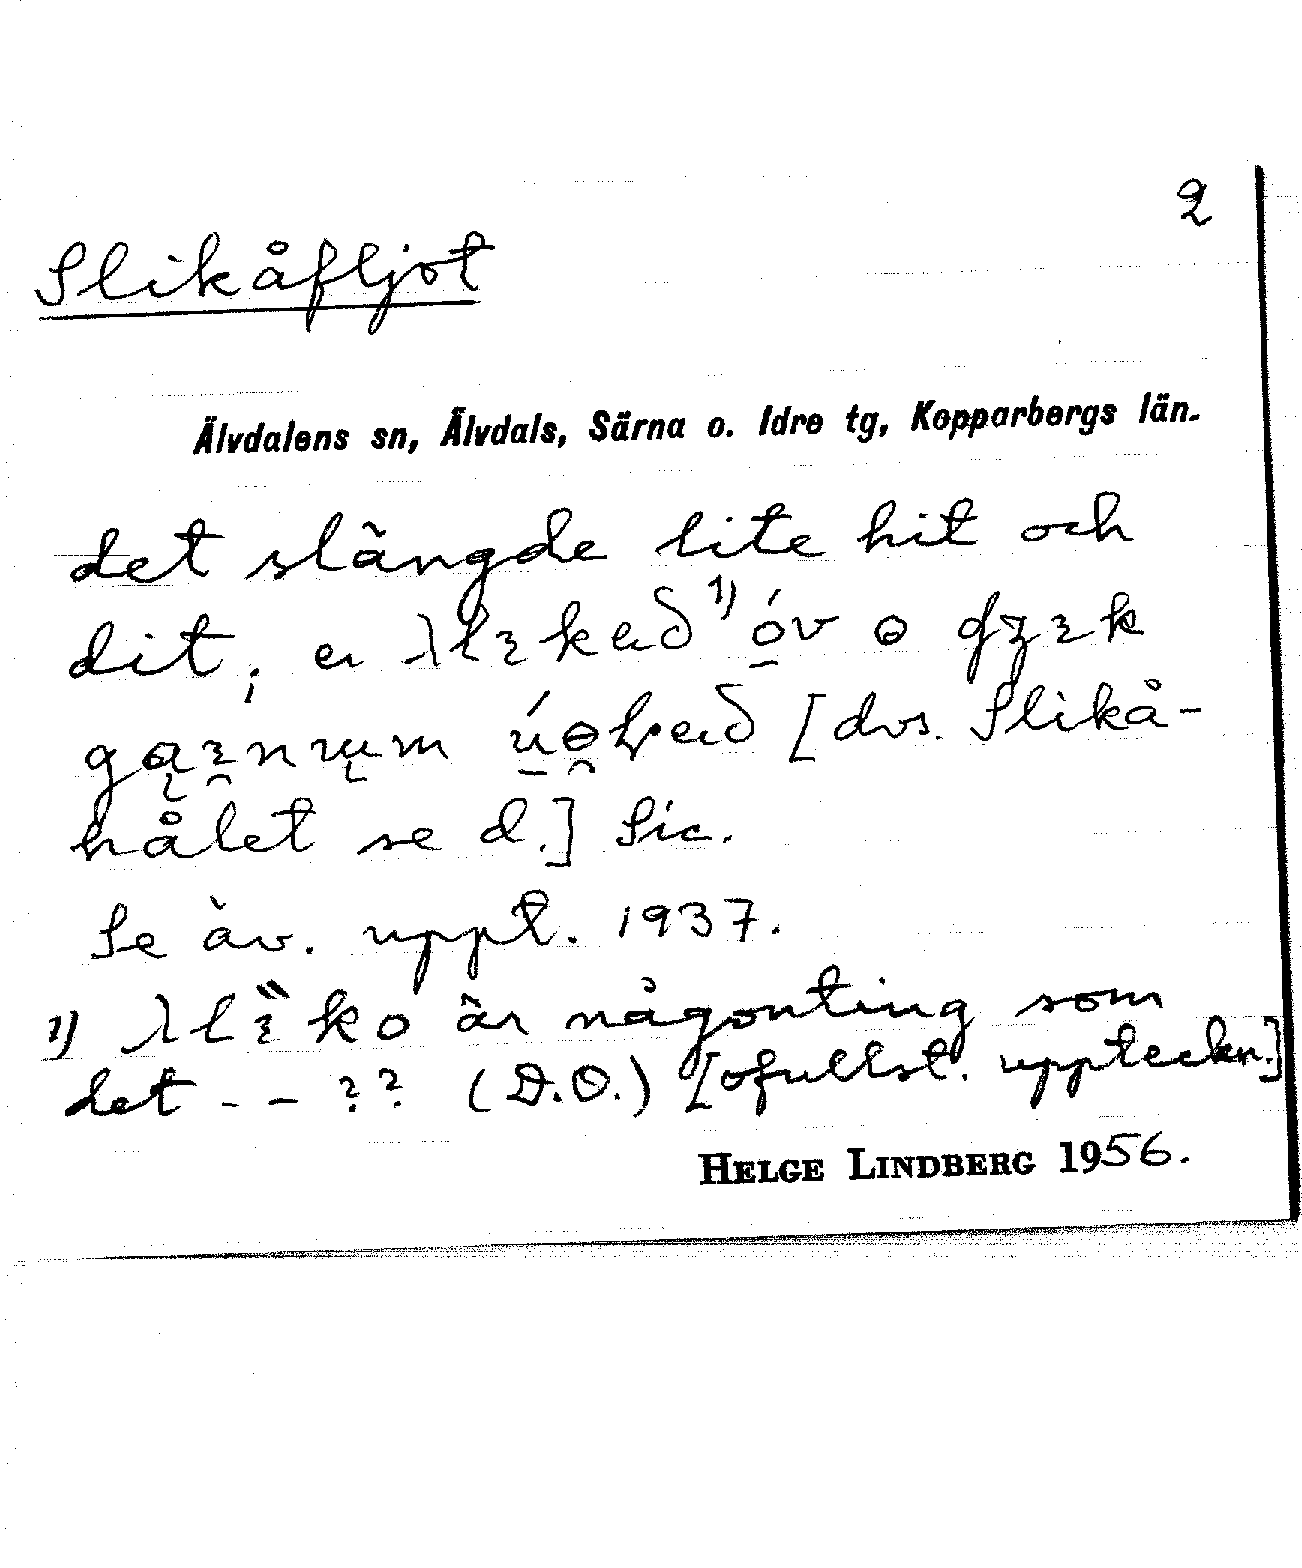 2
Slikåfljot
Älvdalens sn, Älvdals, Särna o. Idre tg, Kopparbergs län.
det slängde lite hit och
dit;
[dvs. Slikå-
hålet se d.] Sic.
Se äv. uppt. 1937.
1) är någonting som
det - - ?? (D.O.) [ofullst. uppteckn.]
HELGE LINDBERG 1956.